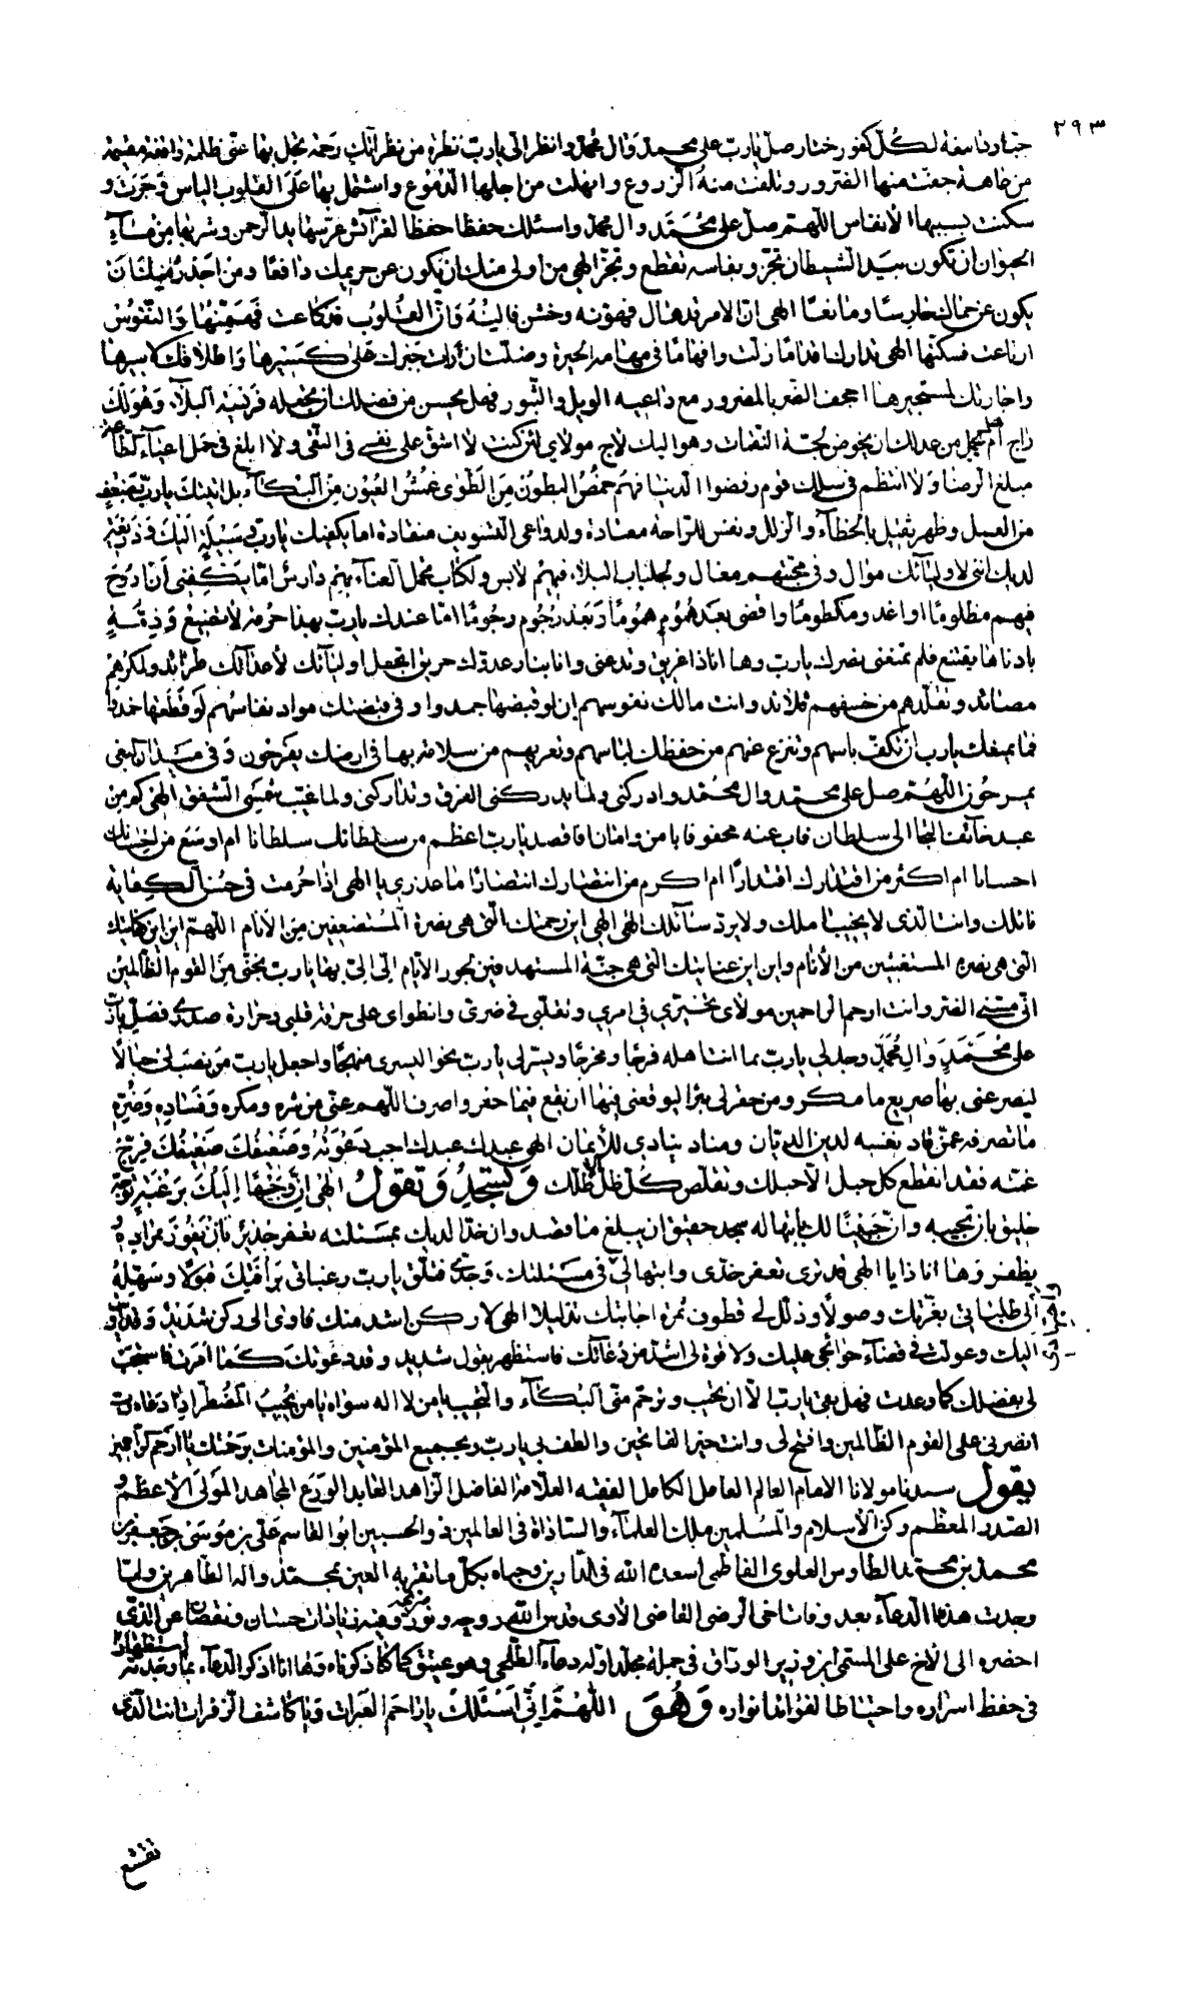 ٢٩٣
جبار دناسفة لكل كفور ختار صل يارب على محمد وال محمد وانظر الى يارب نظرة من نظراتك رحمة تجلى بها عنى ظلمة واقفة مقيمة
من عاهة جفت منها الضروع وتلفت منها الزروع وانهلت من اجلها الدموع واشتمل بها على القلوب الياس وجرت و
سكنت بسببها الانفاس اللهم صل على محمد وال محمد واسئلك حفظا حفظا لغرائس غرستها يد الرحمن وشربها من ماء
الحيوان ان تكون بيد الشيطان تحز وبفاسه تقطع وتجز الهى من اولى منك ان يكون عن حريمك دافعا ومن اجدر منك بان
يكون عن حماك حارسا ومانعا الهى ان الامر قد هال فهونه وخشن فالينه وان القلوب كاعت فهمنها والنفوس
ارتاعت فسكنها الهى تدارك اقداما زلت وافهاما فى مهامه الحيرة وضلت ان رات جبرك على كسيرها واطلاقك لاسيرها
واجارتك لمستجيرها اجحف الضر بالمضرور مع داعيه الويل والثبور فهل يحسن من فضلك ان تجعله فريسة البلاء وهو لك
راج ام يجمل من عدلك ان يخوض لجة النقمات وهو اليك لاج مولاى لئن كنت لا اشق على نفسى فى التقى ولا ابلغ فى حمل اعباء الطاعة
مبلغ الرضا ولا انتظم فى سلك قوم رفضوا الدنيا فهم خمص البطون من الطوى عمش العيون من البكاء بل اتيتك يارب بضعف
من العمل وظهر ثقيل بالخطاء والزلل ونفس للراحة معتادة ولدواعى التسويف منقادة اما يكفيك يارب وسيلة اليك وذريعة
لديك اننى لاوليائك موال وفى محبتهم مغال ولجلباب البلاء فيهم لابس ولكتاب تحمل العناء بهم دارس اما يكفينى ان اروح
فيهم مظلوما او اغدو مكظوما واقضى بعد هموم هموما وبعد رجوم رجوما اما عندك يارب بهذا حرمة لا تضيع وذمة
بادناها يقتنع فلم تمنعنى نصرك يارب وها انا ذا غريق وتدعنى وانا بنار عدوك حريق اتجعل اوليائك لاعدائك طرائد ولمكرهم
مصائد وتقلدهم من خسفهم قلائد وانت مالك نفوسهم ان لو قبضتها جمدوا وفى قبضتك مواد نفاسهم لو قطعتها خمدوا
فما يمنعك يارب ان تكف باسهم وتنزع عنهم من حفظك لباسهم وتعريهم من سلامة بها فى ارضك يفرحون وفى ميدان البغى
يمرحون اللهم صل على محمد وال محمد وادركنى ولما يدركنى الغرق وتداركنى ولما غيب شمسى الشفق الهى كم من
عبد خائف التجا الى سلطان فاب عنه محفوفا بامن وامان افاقصد يارب اعظم من سلطانك سلطانا ام اوسع من احسانك
احسانا ام اكثر من اقتدارك اقتدارا ام اكرم من انتصارك انتصارا ما عذرى يا الهى اذا حرمت فى حسن الكفاية
نائلك وانت الذى لا يخيب املك ولا يرد سائلك الهى الهى اين رحمتك التى هى نصرة المستضعفين من الانام اللهم اين اين كفايتك
التى هى نصرة المستغيثين من الانام واين اين عنايتك التى هى جنة المستهدفين بجور الايام الى الى بها يارب نجنى من القوم الظالمين
انى مسنى الضر وانت ارحم الراحمين مولاى تحيرى فى امرى وتقلبى فى ضرى وانطواى على حرقة قلبى وحرارة صدرى فصل يارب
على محمد وال محمد وجد لى يارب بما انت اهله فرجا ومخرجا ويسر لى يارب نحو اليسرى منهجا واجعل يارب من نصب لى حبالا
ليصرعنى بها صريع ما مكر ومن حفر لى بئرا ليوقعنى فيها ان يقع فيما حفر واصرف اللهم عنى من شره ومكره وفساده وضره
ما تصرفه عمن قاد نفسه لدين الديان ومناد ينادى للايمان الهى عبدك عبدك اجب دعوته وضعيفك ضعيفك فرج
غمته فقد انقطع كل حبل الا حبلك وتقلص كل ظل الا ظلك وتسجد وتقول الهى ان وجها اليك برغبته توجه
خليق بان تجيبه وان جبينا لك بابتهاله سجد حقيق ان يبلغ ما قصد وان خدا لديك بمسئلته تعفر جدير بان يفوز بمراده و
يظفر وها انا ذا يا الهى قد ترى تعفر خدى وابتهالى فى مسئلتك وجدى فتلق يارب رغباتى برافتك قبولا وسهل
الى طلباتى بعزتك وصولا وذلل لى قطوف ثمرة اجابتك تذليلا الهى لا ركن اشد منك فاوى الى ركن شديد وقد اويت
اليك وعولت فى قضاء حوائجى عليك ولا قوة لى اشد من دعائك فاستظهر بقول شديد وقد دعوتك كما امرت فاستجب
لى بفضلك كما وعدت فهل بقى يارب الا ان تجيب وترحم منى البكاء والنحيب يا من لا اله سواه يا من يجيب المضطر اذا دعاه رب
انصرنى على القوم الظالمين وافتح لى وانت خير الفاتحين والطف بى يارب وبجميع المؤمنين والمؤمنات برحمتك يا ارحم الراحمين
يقول سيدنا مولانا الامام العالم العامل الكامل الفقيه العلامة الفاضل الزاهد العابد الورع المجاهد المولى الاعظم
الصدر المعظم ركن الاسلام والمسلمين ملك العلماء والسادة فى العالمين ذو الحسبين ابو القاسم على بن موسى بن جعفر بن
محمد بن محمد الطاوس العلوى الفاطمى اسعده الله فى الدارين وحباه بكل ما تقر به العين بمحمد واله الطاهرين ولما
وجدت هذا الدعاء بعد وفات اخى الرضى القاضى الاوى قدس الله روحه ونور ضريحه وفيه زيادات حسان ونقصان عن الذى
احضره الى الاخ على المسمى ابن وزير الوراق فى جملة مجلد اوله دعاء الطلحى وهو عتيق كما كنا ذكرناه وها انا اذكر الدعاء بما وجدته استظهارا
فى حفظ اسراره واحتياطا لفوائد انواره وهو اللهم انى اسئلك يا راحم العبرات ويا كاشف الزفرات انت الذى
تقشع